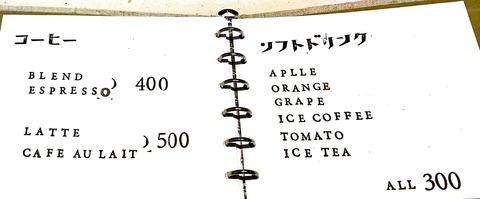 コーヒー
BLEND
ESPRESSO
400
LATTE
CAFE AU LAIT
500
ソフトドリンク
APLLE
ORANGE
GRAPE
ICE COFFEE
TOMATO
ICE TEA
ALL 300